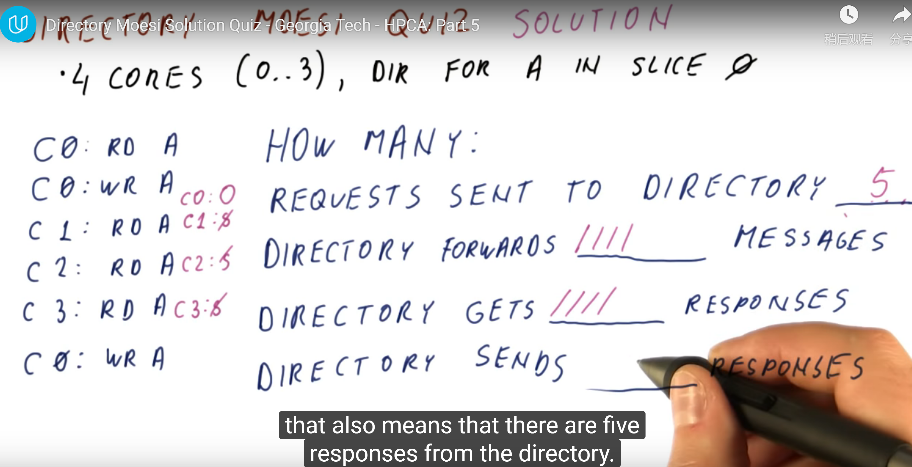 DIRECTORY MOESI QUIZ SOLUTION
Directory Moesi Solution Quiz - Georgia Tech - HPCA: Part 5
稍后观看 分享
• 4 CORES (0..3), DIR FOR A IN SLICE 0
C0: RD A
C0: WR A C0:O
C1: RD A C1:S
C2: RD A C2:S
C3: RD A C3:S
C0: WR A
HOW MANY:
REQUESTS SENT TO DIRECTORY 5
DIRECTORY FORWARDS //// MESSAGES
DIRECTORY GETS //// RESPONSES
DIRECTORY SENDS RESPONSES
that also means that there are five
responses from the directory.